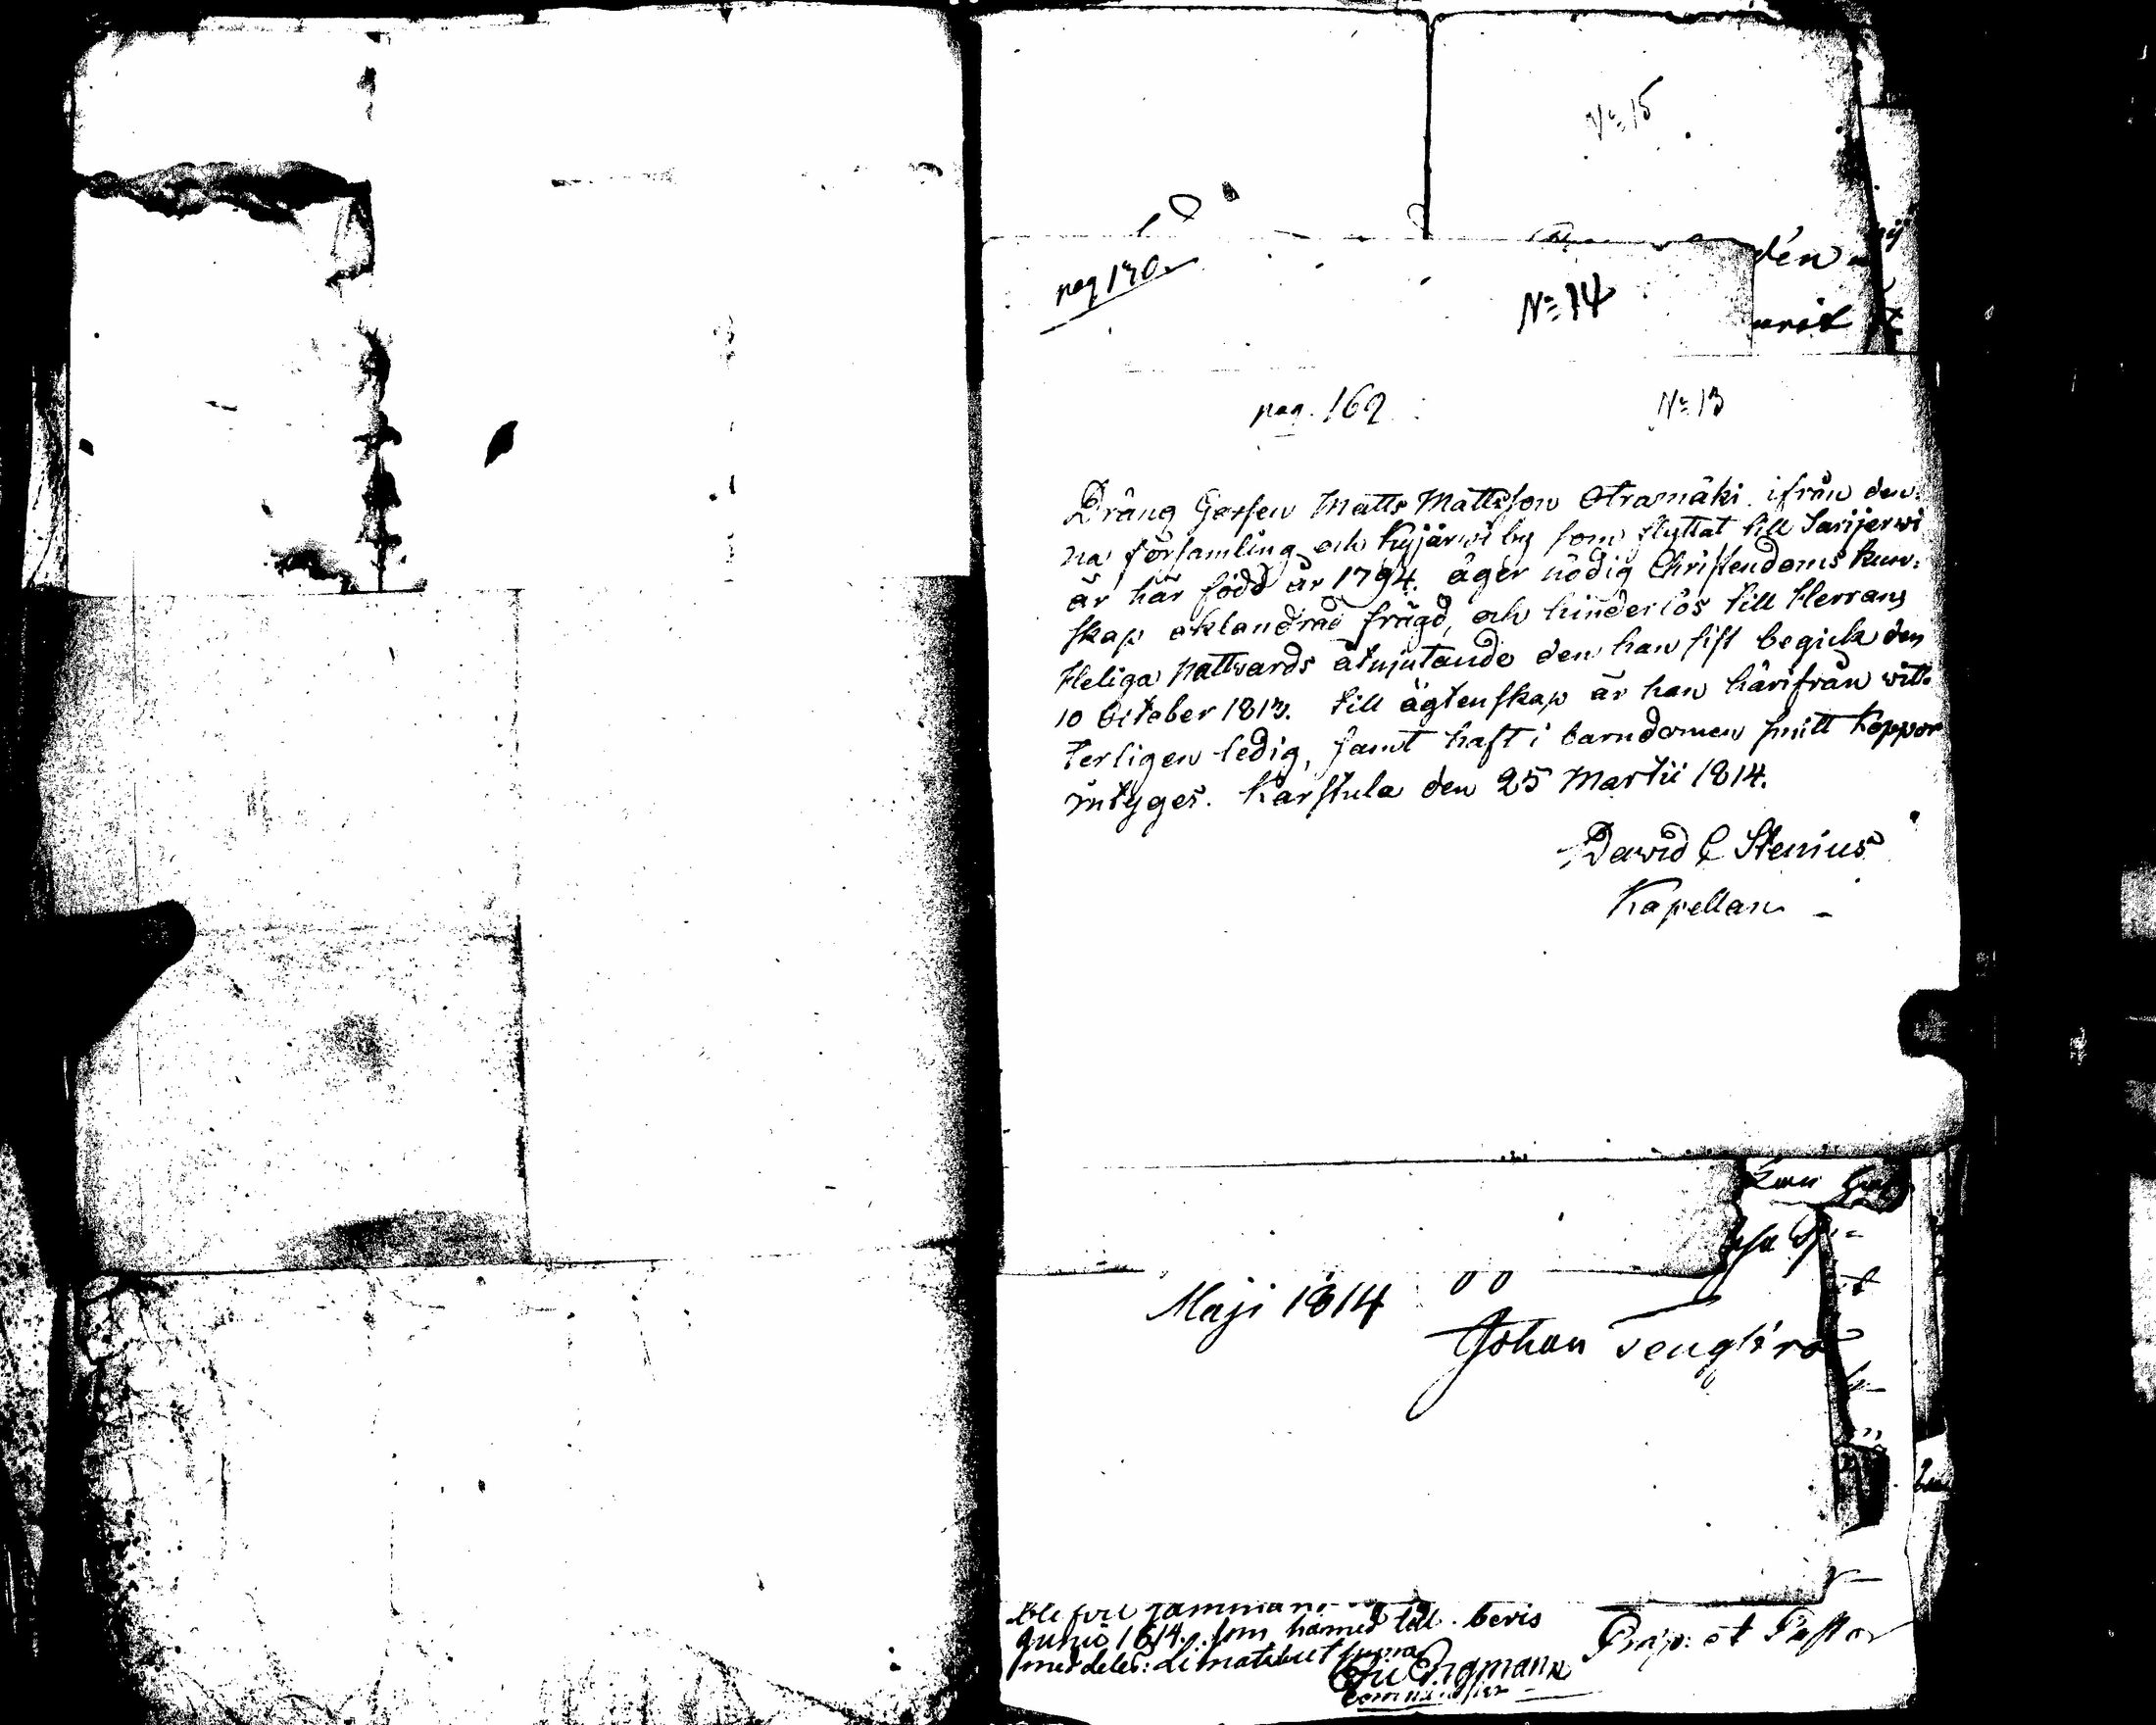 N:o 15
den
pag 170.
N:o 14
pag. 162
N:o 13
Dräng Gossen Matts Mattsson Otramäki ifrån den-
na församling och Kyjärwi by som flyttat till Sarijerwi
är här född år 1794. äger nödig Christendoms kun-
skap oklandrad frägd, och hinderlös till Herrans
Heliga Nattvards åtnjutande den han sist begick den
10 October 1813. till ägtenskap är han härifrån witt-
terligen ledig, samt haft i barndomen smitt koppor
intyges. Karstula den 25 Martii 1814.
David C Stenius
Kapellan
Maji 1814
Johan Tenglér
Junii 1814. som härmed till bevis
meddeles:
Præp: et Pastor
Engmann